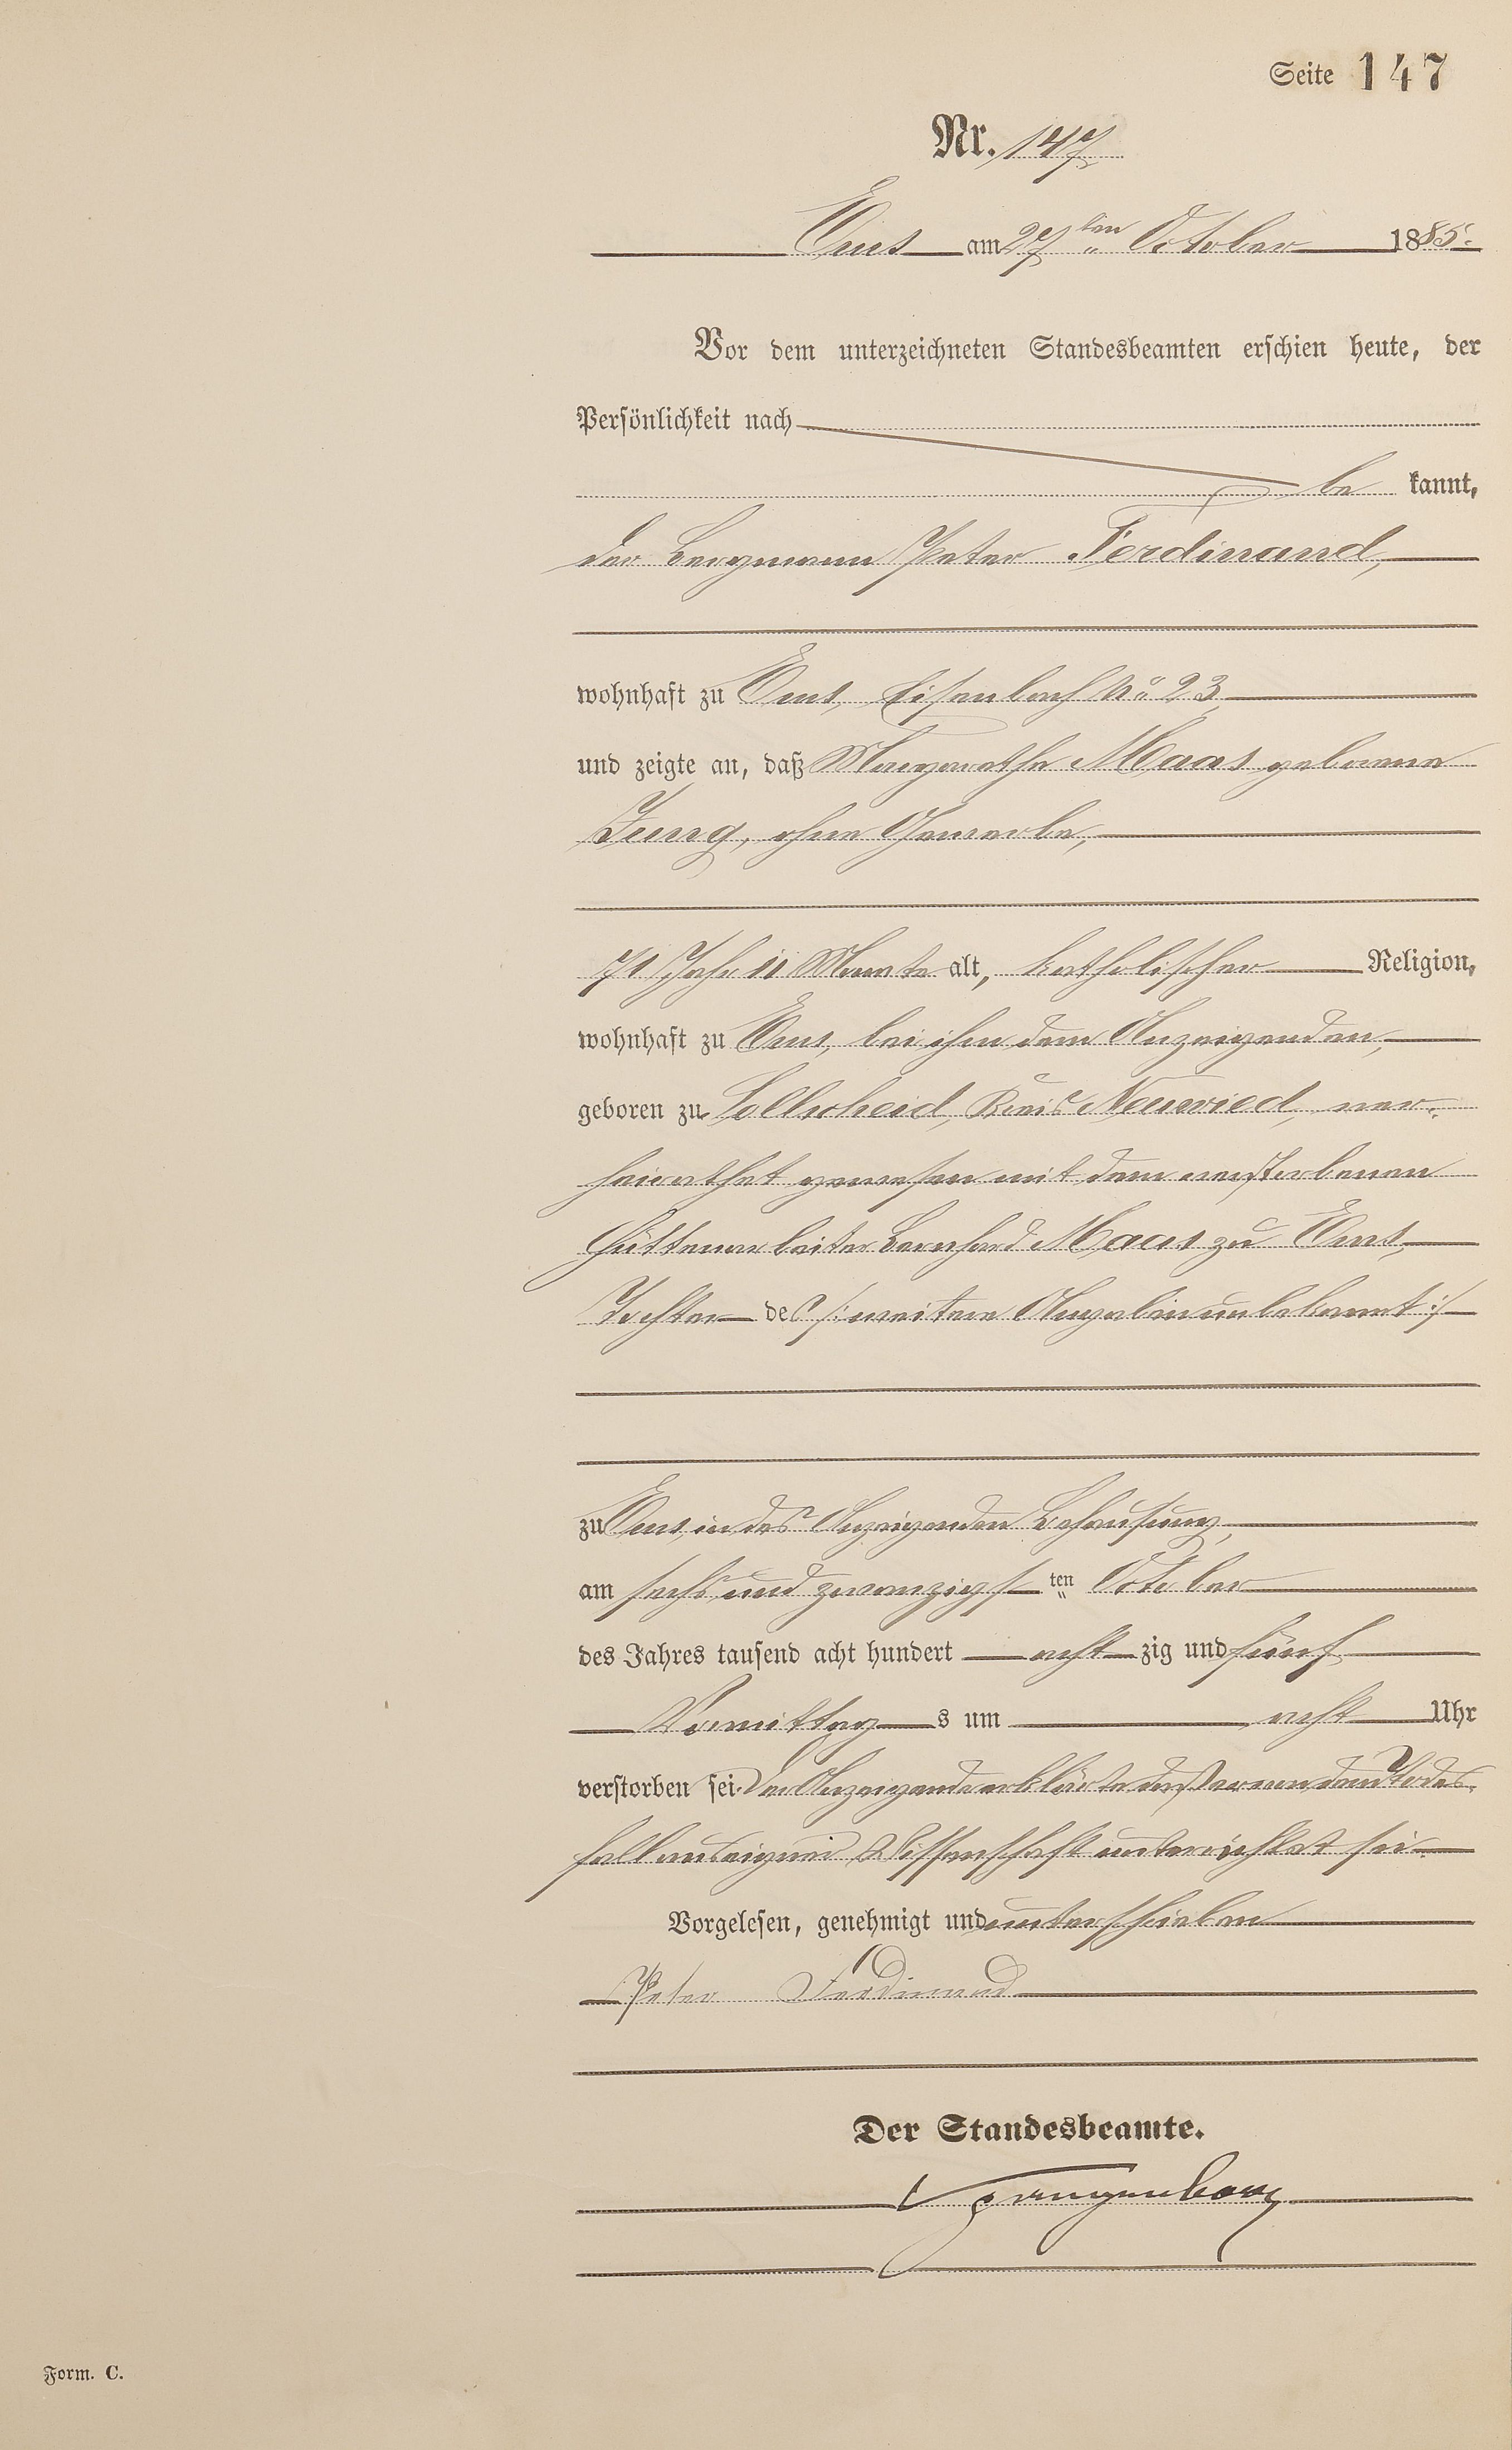 Seite 147
Nr. 147
Ems am 27ten October 1885.
Vor dem unterzeichneten Standesbeamten erschien heute, der
Persönlichkeit nach
be kannt,
der Bergmann Peter Ferdinand,
wohnhaft zu Ems, Eisenbach No 23,
und zeigte an, daß Margarethe Maas geborene
Jung, ohne Gewerbe,
71 Jahr 11 Monate alt, katholischer Religion,
wohnhaft zu Ems, bei ihm dem Anzeigenden,
geboren zu Kreis Neuwied, ver-
heirathet gewesen mit dem verstorbenen
Hüttenarbeiter Bernhard Maas zu Ems,
Tochter des /: weitere Angabe unbekannt :/
zu Ems in des Anzeigenden Behausung,
am sechs und zwanzigsten October
des Jahres tausend acht hundert acht zig und fünf
Vormittag s um acht Uhr
verstorben sei. Der Anzeigende erklärte daß er von dem Todes-
fall aus eigner Wissenschaft unterrichtet sei.
Vorgelesen, genehmigt und unterschrieben
Peter Ferdinand
Der Standesbeamte.
Form. C.